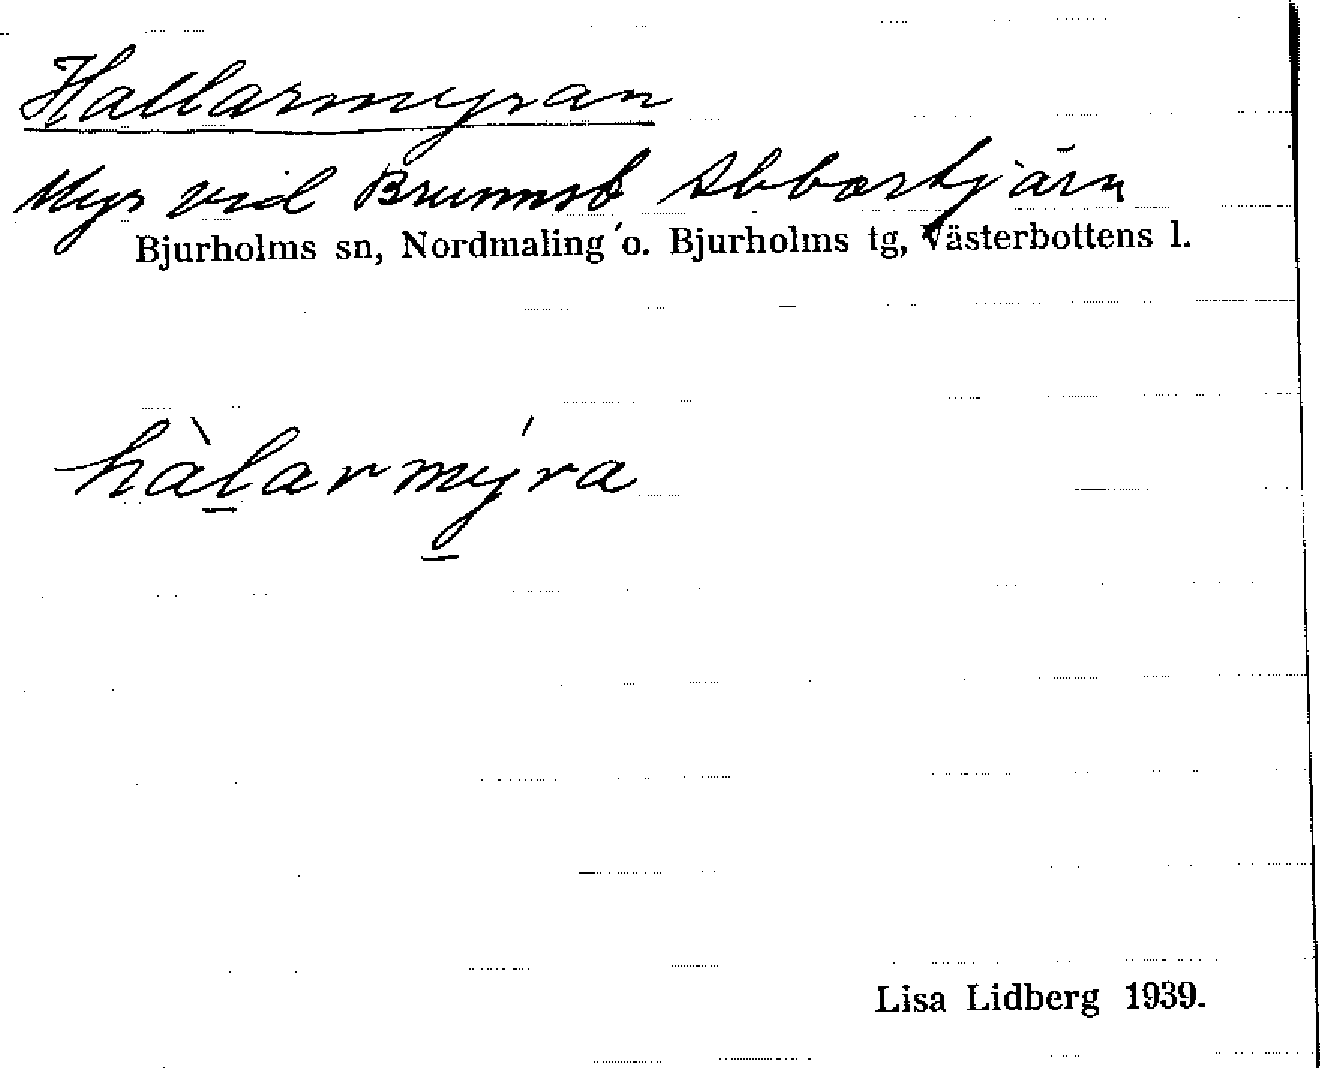 Hallarmyran
Myr vid Brunnsb Abborrtjärn
Bjurholms sn, Nordmaling o. Bjurholms tg, Västerbottens l.
hàlarmýra
Lisa Lidberg 1939.